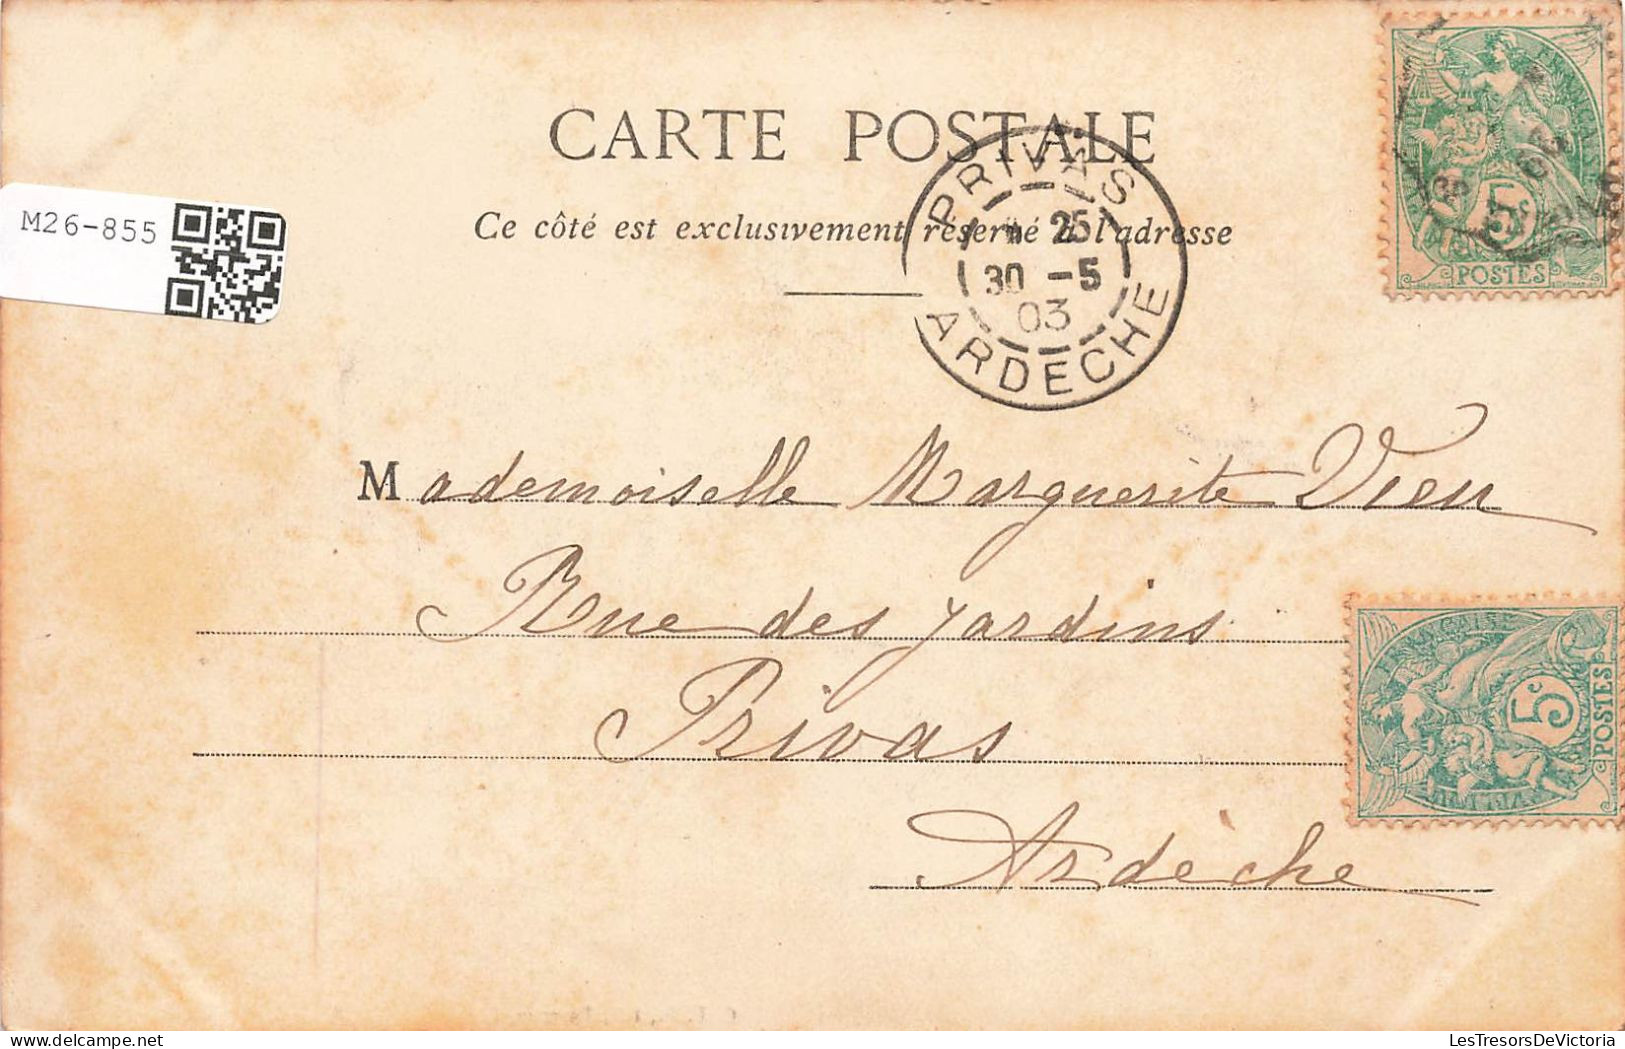 CARTE POSTALE
M26-855
Ce côté est exclusivement réservé à l'adresse
PRIVAS
25
30 -5
03
ARDECHE
5c
POSTES
Mademoiselle Marguerite Vieu
Rue des Jardins
Privas
Ardèche
FRANÇAISE
5c
POSTES
LesTresorsDeVictoria